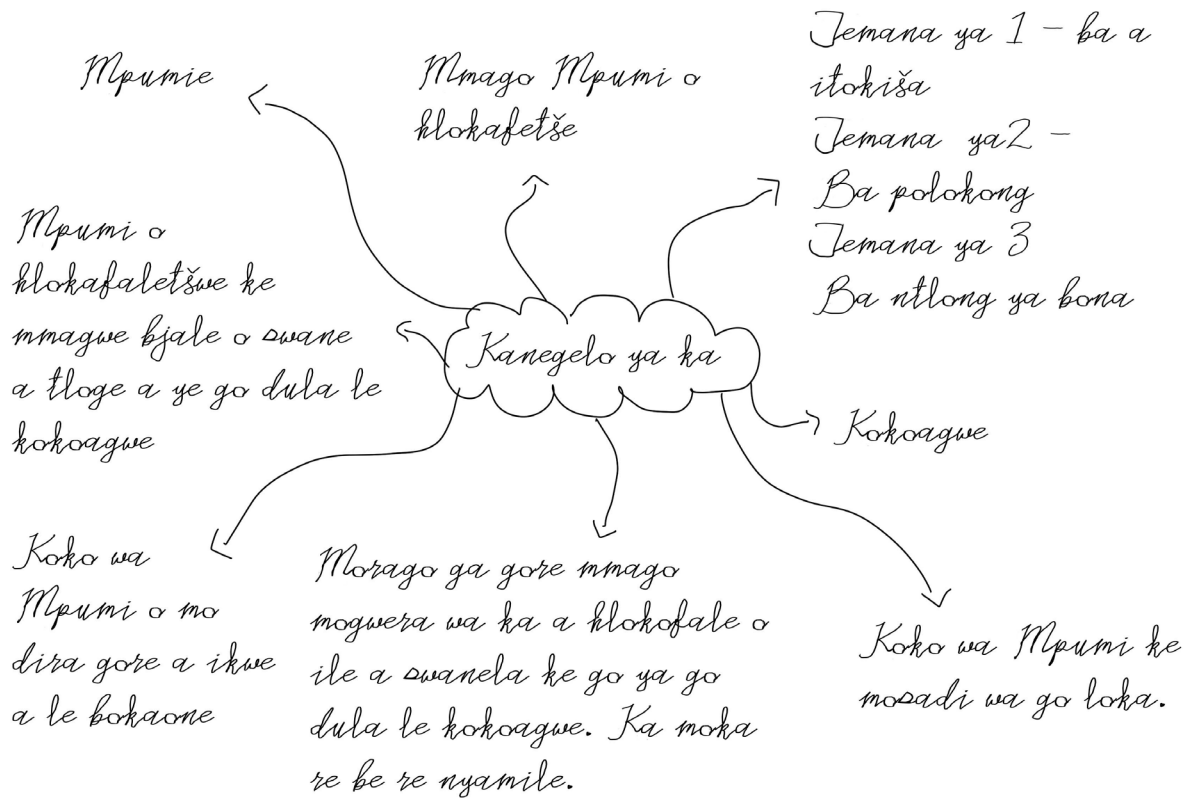 Mpumie
Mmago Mpumi o
hlokafetše
Temana ya 1 – ba a
itokiša
Temana ya2 –
Ba polokong
Temana ya 3
Ba ntlong ya bona
Mpumi o
hlokafaletšwe ke
mmagwe bjale o swane
a tloge a ye go dula le
kokoagwe
Kanegelo ya ka
Kokoagwe
Koko wa
Mpumi o mo
dira gore a ikwe
a le bokaone
Morago ga gore mmago
mogwera wa ka a hlokofale o
ile a swanela ke go ya go
dula le kokoagwe. Ka moka
re be re nyamile.
Koko wa Mpumi ke
mosadi wa go loka.